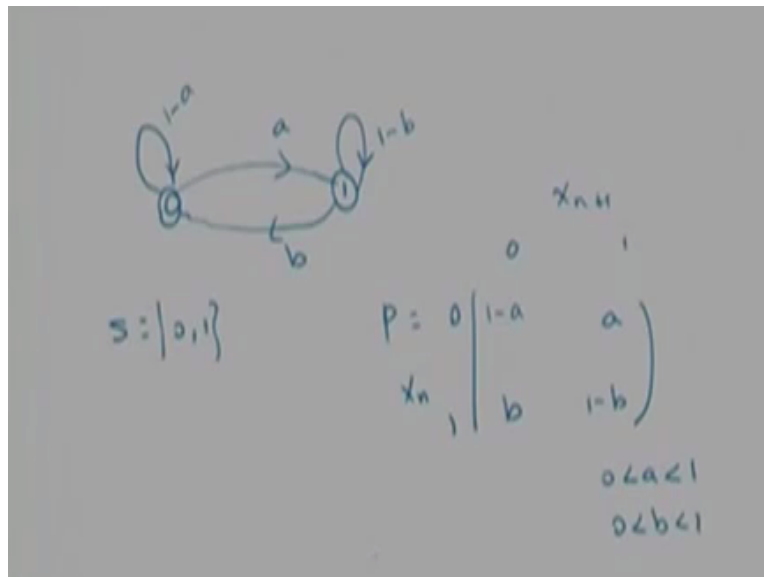 1-a
a
1-b
0
1
b
X_{n+1}
0 1
S = {0,1}
P = 0 1-a a
X_n
1 b 1-b
0<a<1
0<b<1